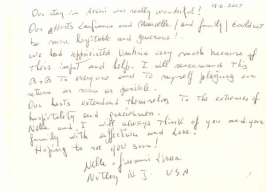 13-6-2007
Our stay in Assisi was really wonderful!
Our hosts Lanfranco and (and family) couldn't
be more hospitable and generous!
We had appreciated Umbria very much because of
their input and help. I will recommend this
to everyone and to myself pledging our
return as soon as possible.
Our hosts extended themselves to the extremes of
hospitality and
Nella and I will always think of you and your
family with affection and love!
Hoping to see you soon!
Nella Giovanni
Nutley N.J. USA